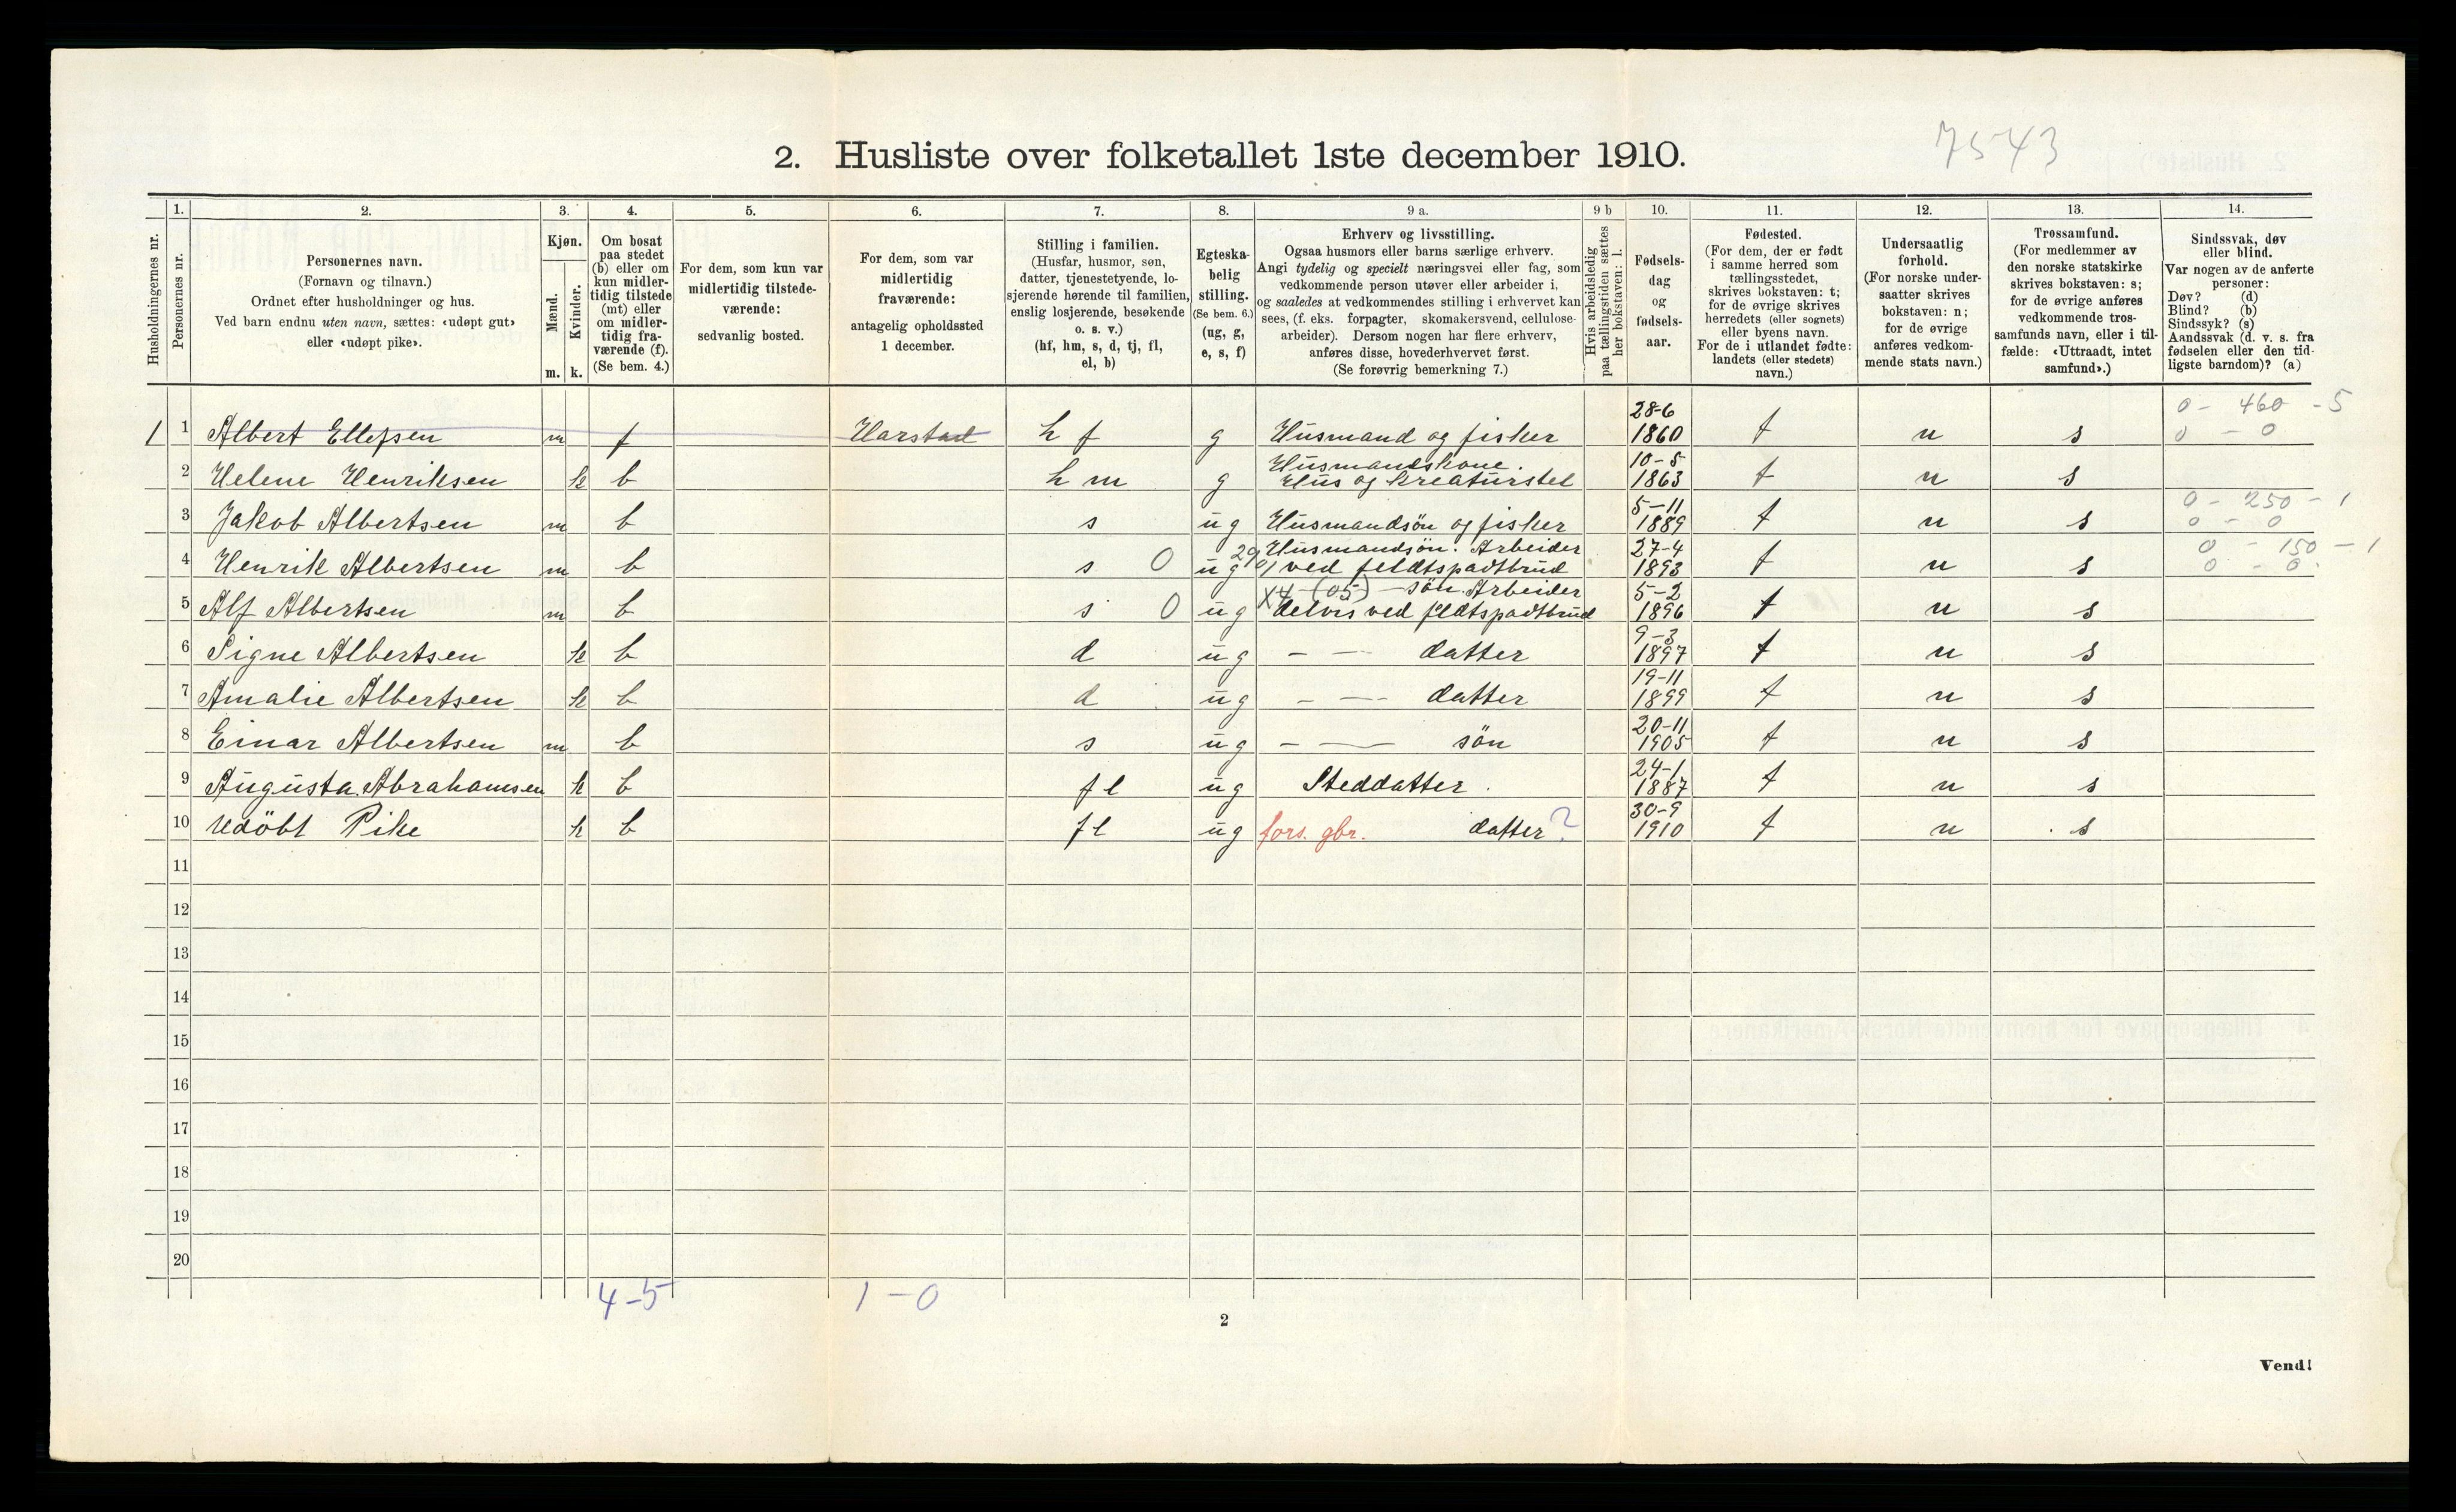 7543
2. Husliste over folketallet 1ste december 1910.
Husholdningernes nr.
1.
Personernes nr.
2.
Personernes navn.
(Fornavn og tilnavn.)
Ordnet efter husholdninger og hus.
Ved barn endnu uten navn, sættes: «udøpt gut»
eller «udøpt pike».
3.
Kjøn.
Mænd.
Kvinder.
m. k.
4.
Om bosat
paa stedet
(b) eller om
kun midler-
tidig tilstede
(mt) eller
om midler-
tidig fra-
værende (f).
(Se bem. 4.)
5.
For dem, som kun var
midlertidig tilstede-
værende:
sedvanlig bosted.
6.
For dem, som var
midlertidig
fraværende:
antagelig opholdssted
1 december.
7.
Stilling i familien.
(Husfar, husmor, søn,
datter, tjenestetyende, lo-
sjerende hørende til familien,
enslig losjerende, besøkende
o. s. v.)
(hf, hm, s, d, tj, fl,
el, b)
8.
Egteska-
belig
stilling.
(Se bem. 6.)
(ug, g,
e, s, f)
9 a.
Erhverv og livsstilling.
Ogsaa husmors eller barns særlige erhverv.
Angi tydelig og specielt næringsvei eller fag, som
vedkommende person utøver eller arbeider i,
og saaledes at vedkommendes stilling i erhvervet kan
sees, (f. eks. forpagter, skomakersvend, cellulose-
arbeider). Dersom nogen har flere erhverv,
anføres disse, hovederhvervet først.
(Se forøvrig bemerkning 7.)
9 b
Hvis arbeidsledig
paa tællingstiden sættes
her bokstaven: l.
10.
Fødsels-
dag
og
fødsels-
aar.
11.
Fødested.
(For dem, der er født
i samme herred som
tællingsstedet,
skrives bokstaven: t;
for de øvrige skrives
herredets (eller sognets)
eller byens navn.
For de i utlandet fødte:
landets (eller stedets)
navn.)
12.
Undersaatlig
forhold.
(For norske under-
saatter skrives
bokstaven: n;
for de øvrige
anføres vedkom-
mende stats navn.)
13.
Trossamfund.
(For medlemmer av
den norske statskirke
skrives bokstaven: s;
for de øvrige anføres
vedkommende tros-
samfunds navn, eller i til-
fælde: «Uttraadt, intet
samfund».)
14.
Sindssvak, døv
eller blind.
Var nogen av de anførte
personer:
Døv? (d)
Blind? (b)
Sindssyk? (s)
Aandssvak (d. v. s. fra
fødselen eller den tid-
ligste barndom)? (a)
1 1 Albert Ellefsen m f Harstad h f g Husmand og fisker 28-6 1860 t n s 0 - 460 - 5 0 - 0
2 Helene Henriksen k b h m g Husmandskone. Hus og kreaturstel 10-5 1863 t n s
3 Jakob Albertsen m b s ug Husmandsön og fisker 5-11 1889 t n s 0 - 250 - 1 0 - 0
4 Henrik Albertsen m b s 0 ug Husmandsön. Arbeider ved feldtspadtbrud 27-4 1893 t n s 0 - 150 - 1 0 - 0
5 Alf Albertsen m b s 0 ug X4 (05) - sön. Arbeider delvis ved feldtspadtbrud 5-2 1896 t n s
6 Signe Albertsen k b d ug - - datter 9-3 1897 t n s
7 Amalie Albertsen k b d ug - - datter 19-11 1899 t n s
8 Einar Albertsen m b s ug - - sön 20-11 1905 t n s
9 Augusta Abrahamsen k b fl ug Steddatter. 24-1 1887 t n s
10 Udöbt Pike k b fl ug fors. gbr. datter? 30-9 1910 t n s
11
12
13
14
15
16
17
18
19
20
4-5 1-0
2
Vend!